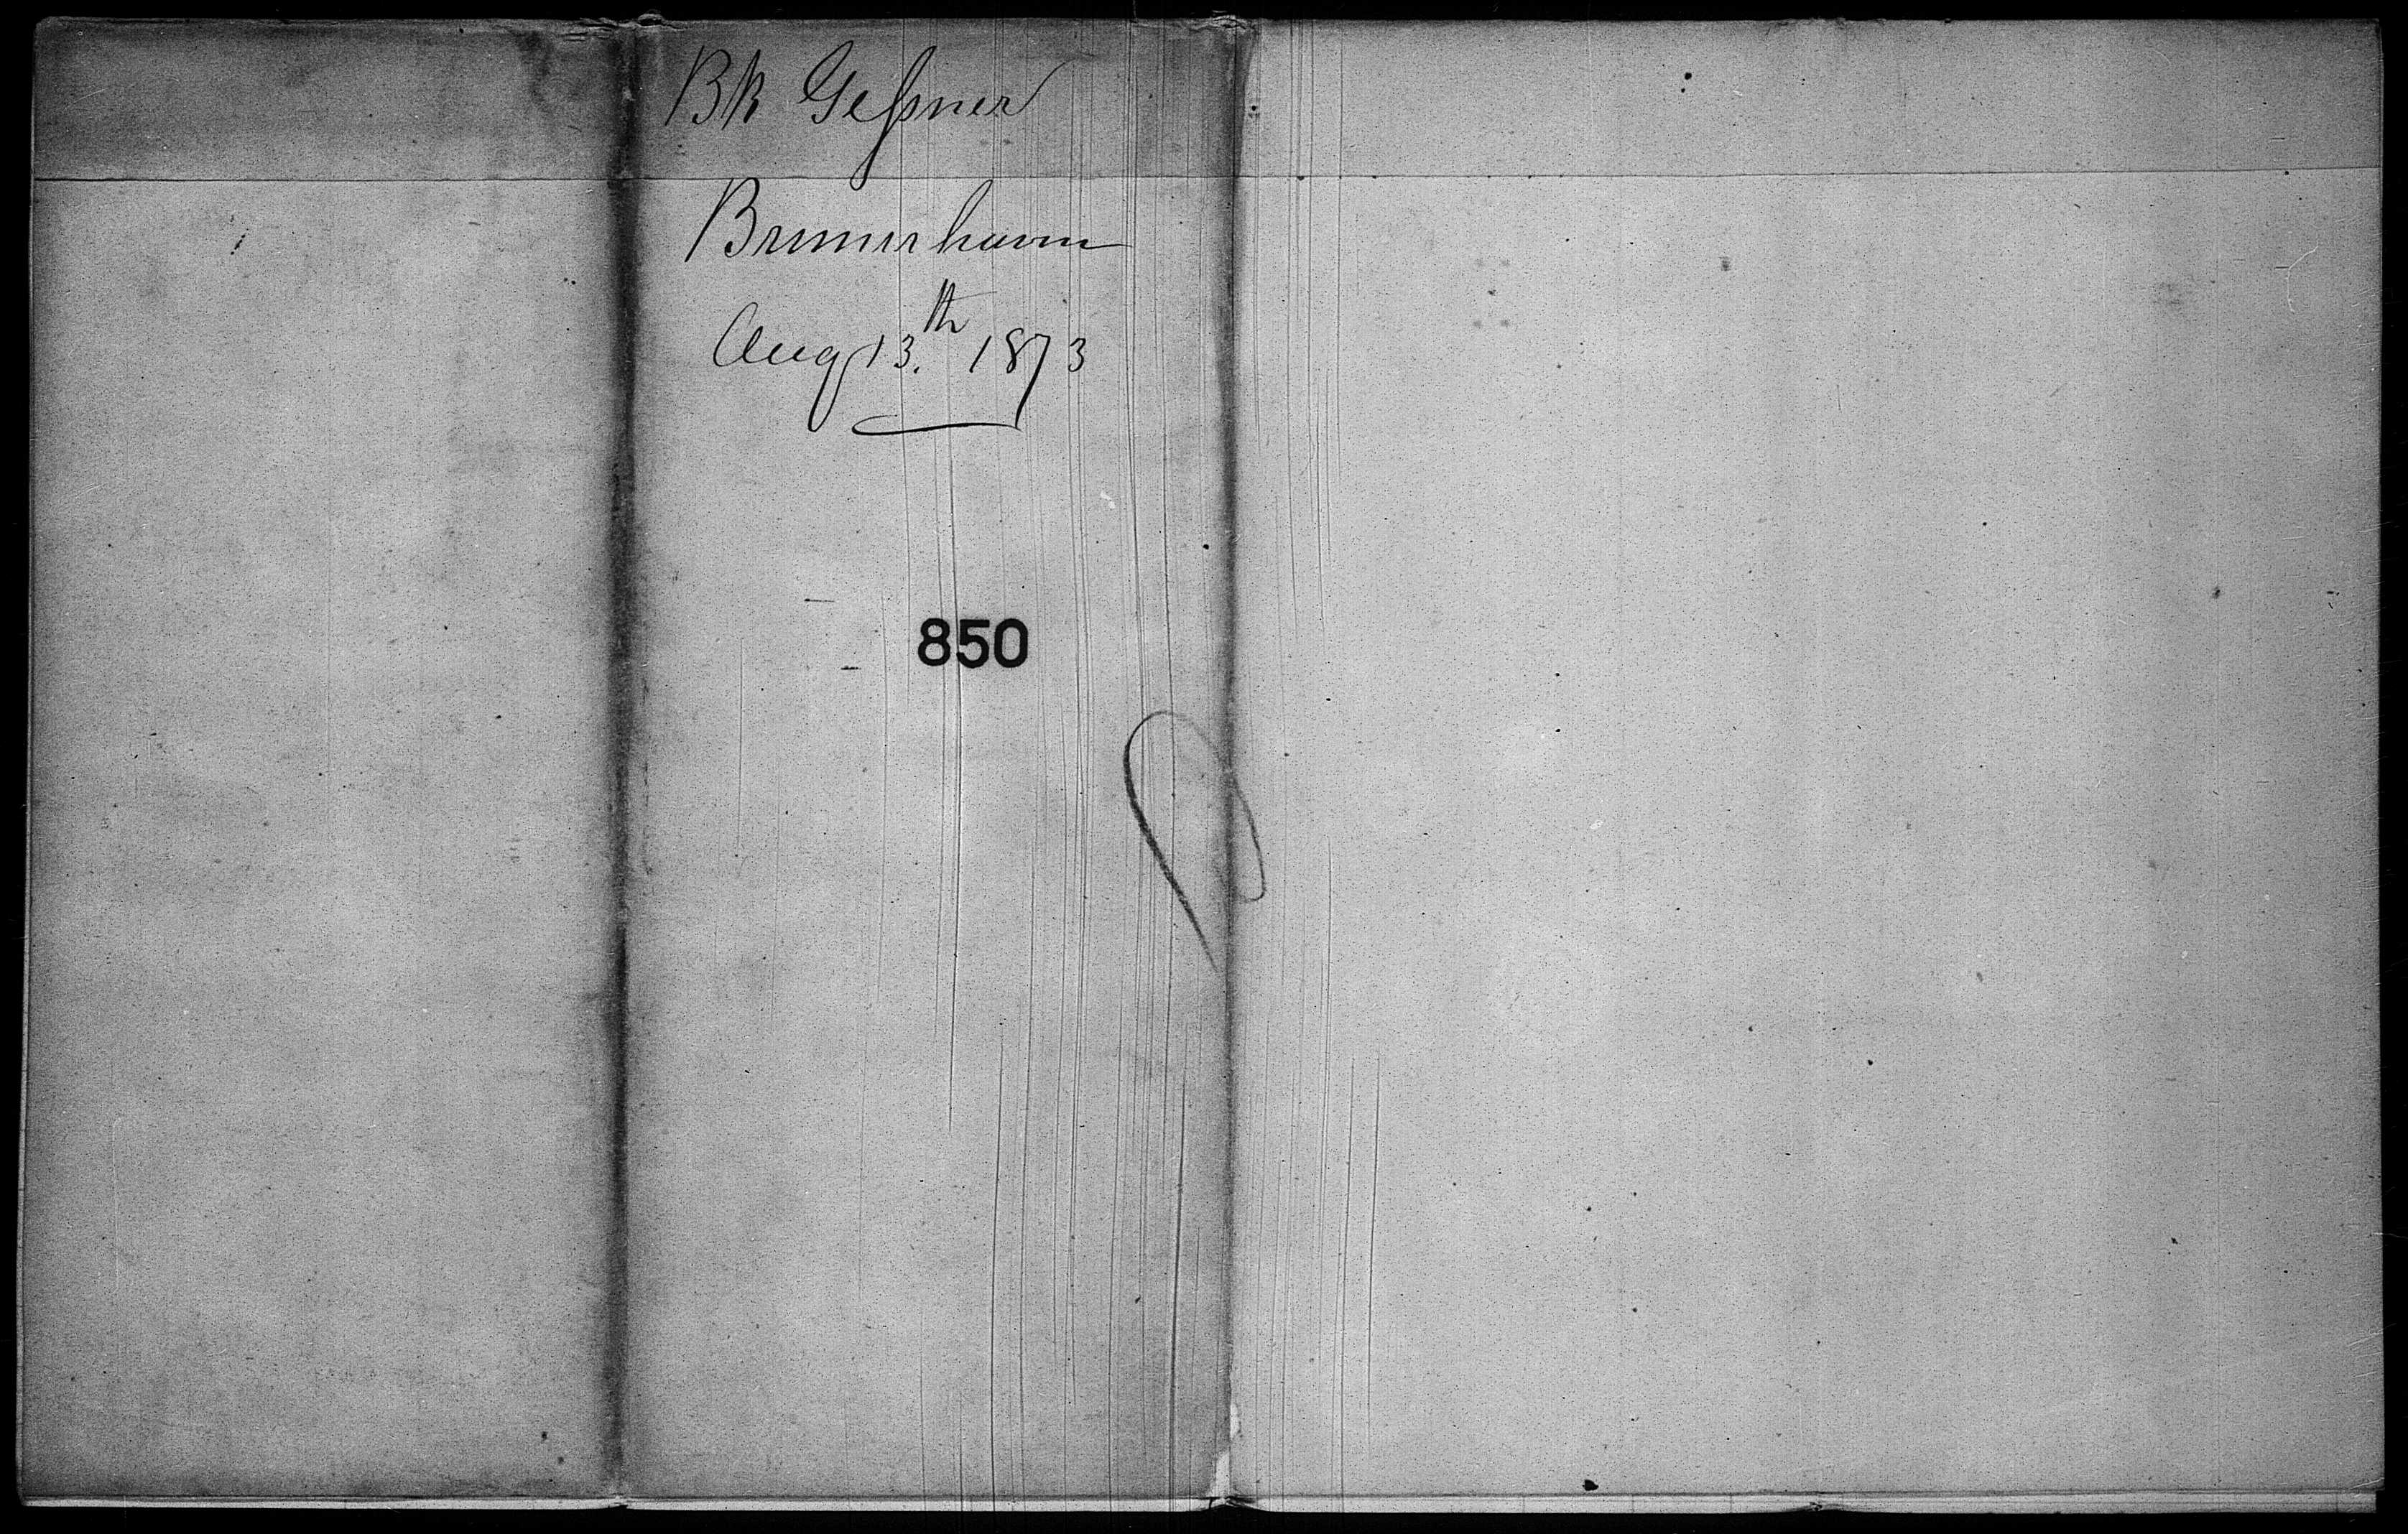 Bk Geßner
Bremerhaven
Aug 13.th 1873
850